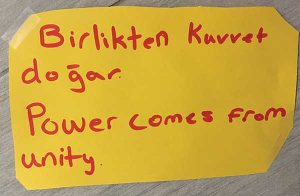 Birlikten Kuvvet
doğar.
Power comes from
unity.